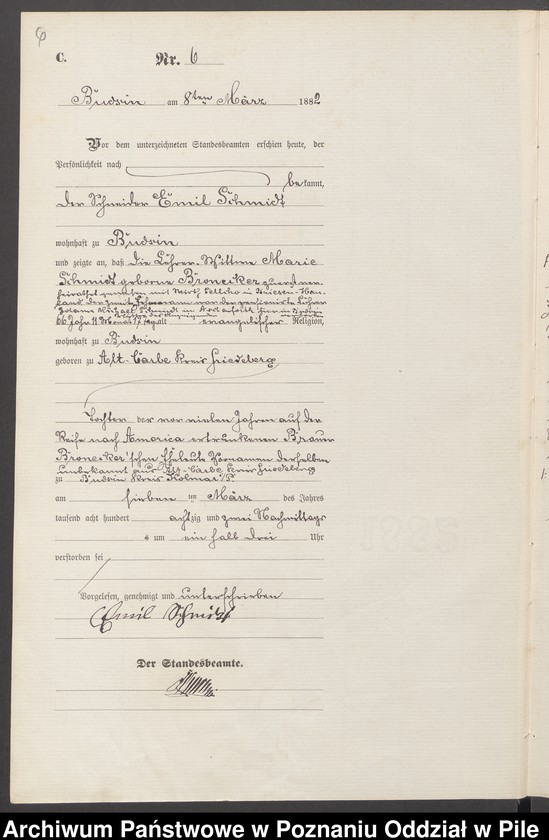 6
C.
Nr. 6
Budsin am 8ten März 1882
Vor dem unterzeichneten Standesbeamten erschien heute, der
Persönlichkeit nach
bekannt,
der Schneider Emil Schmidt
wohnhaft zu Budsin
und zeigte an, daß die Lehrer-Wittwe Marie
Schmidt geborne Bronecker zuerst ver-
heirathet gewesen mit Wirth in
land, der zweite Ehemann war der pensionirte Lehrer
Johann Schmidt in
66 Jahr 11 Monat 17 Tag alt evangelischer Religion,
wohnhaft zu Budsin
geboren zu Alt-Carbe Kreis Friedeberg
Tochter der vor vielen Jahren auf der
Reise nach America ertrunkenen
Bronecker'schen Eheleute Vornamen derselben
unbekannt aus Alt-Carbe Kreis Friedeberg
zu Budsin Kreis Kolmar i/P.
am sieben ten März des Jahres
tausend acht hundert achtzig und zwei Nachmittags
um ein halb drei Uhr
verstorben sei
Vorgelesen, genehmigt und unterschrieben
Emil Schmidt
Der Standesbeamte.
Archiwum Państwowe w Poznaniu Oddział w Pile